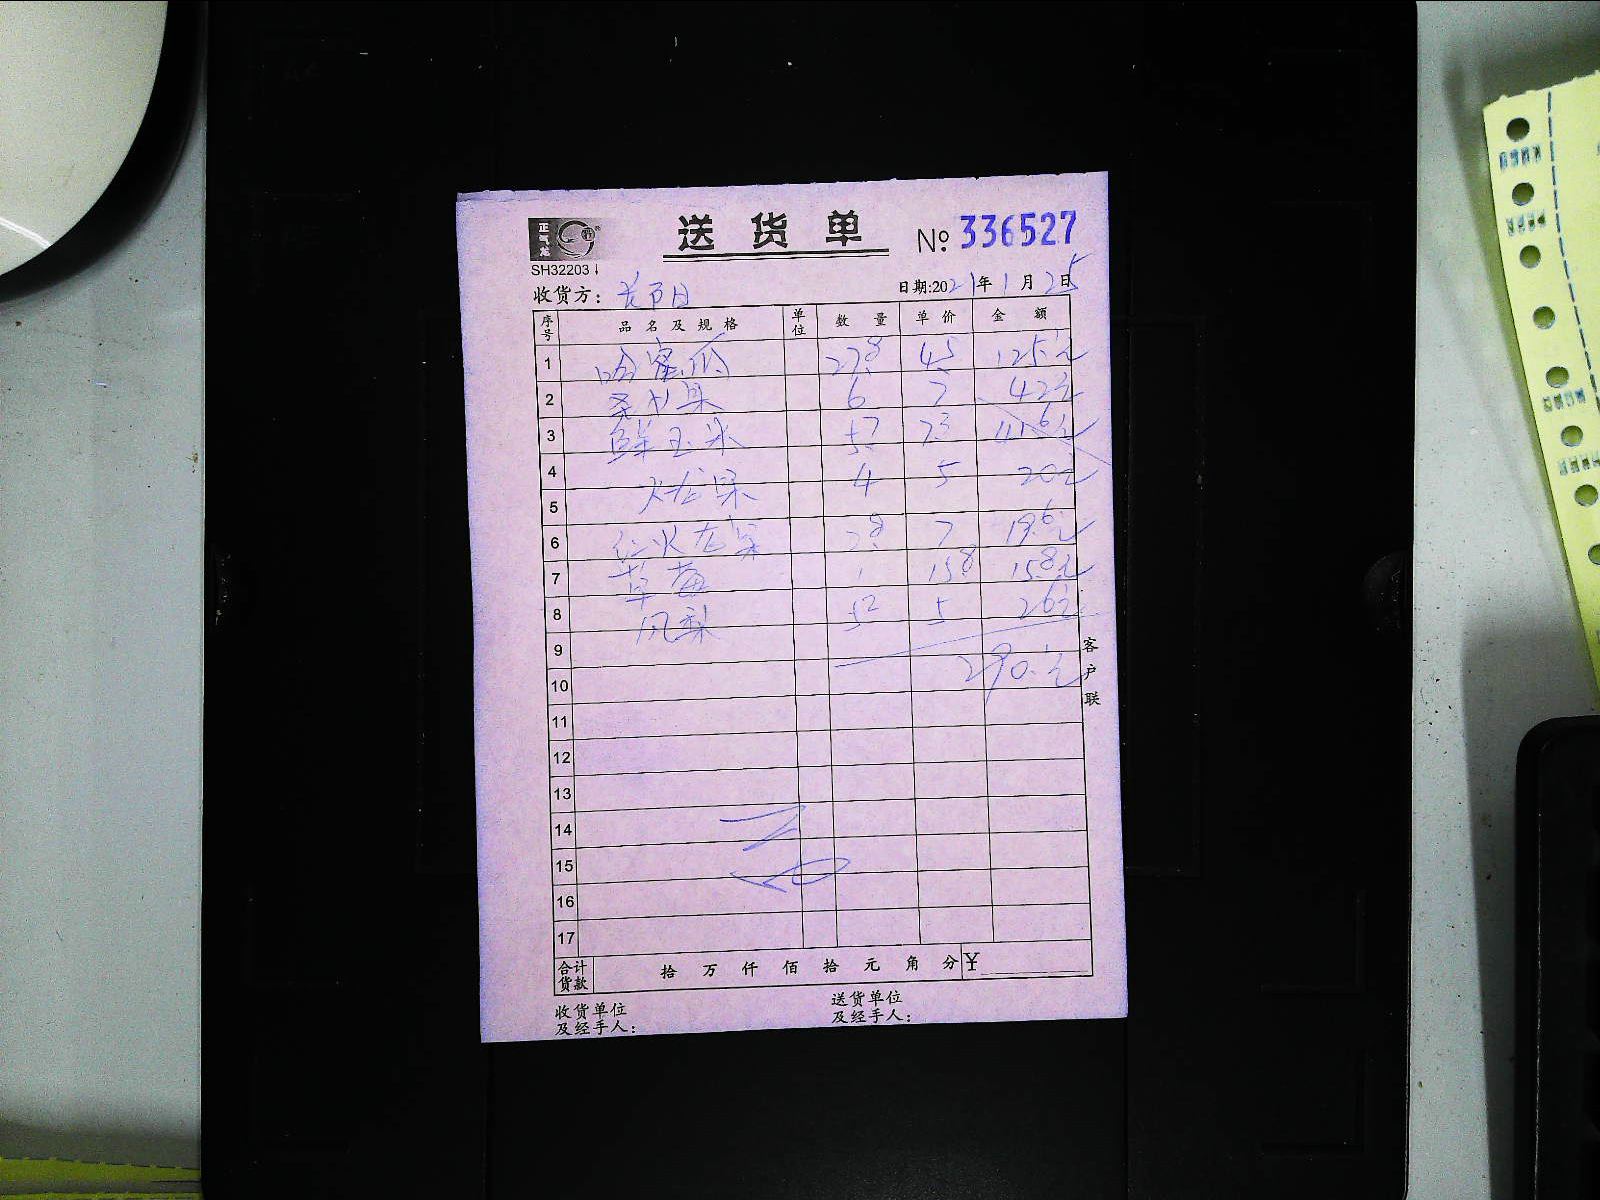 正气龙
送货单 № 336527
SH32203
收货方： 日期:2021年1月25日
序号 品名及规格 单位 数量 单价 金额
1 哈蜜瓜 27.8 4.5 125.元
2 水果 6 7 42元
3 鲜玉米 5.7 7.3 41.6元
4 火龙果 4 5 20元
5
6 红火龙果 2.8 7 19.6元
7 草莓 1 15.8 15.8元
8 凤梨 5.2 5 26元
9
290.元
10
11
12
13
14
15
16
17
合计货款 拾 万 仟 佰 拾 元 角 分 ¥
收货单位及经手人： 送货单位及经手人：
客户联